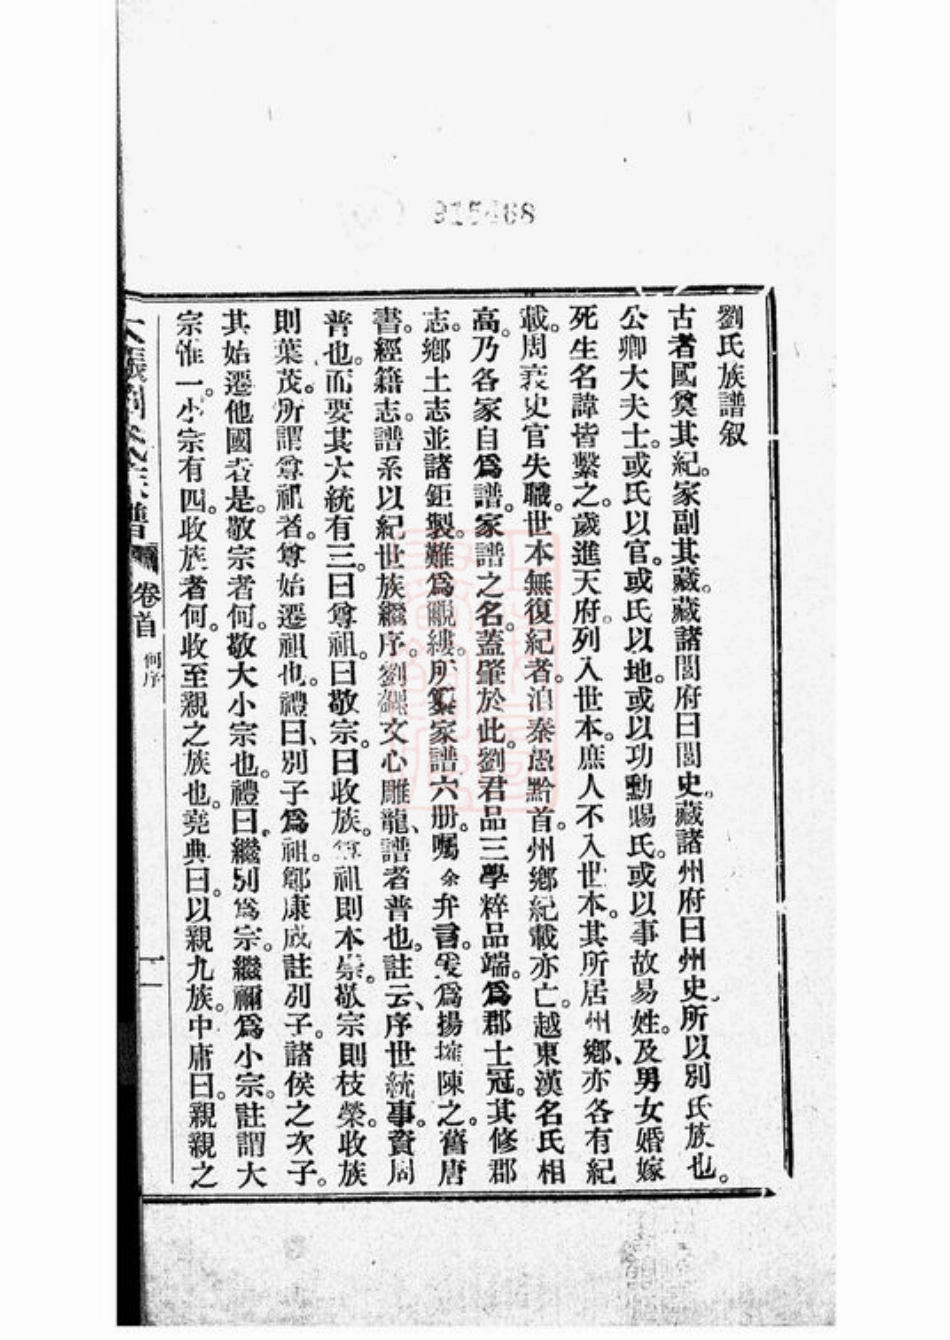 劉氏族譜叙
古者國奠其紀。家副其藏。藏諸閭府曰閭史。藏諸州府曰州史。所以別氏族也。
公卿大夫士。或氏以官。或氏以地。或以功勳賜氏。或以事故易姓。及男女婚嫁
死生名諱皆繫之。歲進天府。列入世本。庶人不入世本。其所居州鄉、亦各有紀
載。周衰史官失職。世本無復紀者。洎秦愚黔首。州鄉紀載亦亡。越東漢名氏相
高。乃各家自爲譜。家譜之名。蓋肇於此。劉君品三學粹品端。爲郡士冠。其修郡
志。鄉土志並諸鉅製。難爲覼縷。所纂家譜六册。囑余弁言。爰爲揚搉陳之。舊唐
書。經籍志。譜系以紀世族繼序。劉勰文心雕龍、譜者普也。註云、序世統。事資周
普也。而要其大統有三。曰尊祖。曰敬宗。曰收族。尊祖則本崇。敬宗則枝榮。收族
則葉茂。所謂尊祖者。尊始遷祖也。禮曰、別子爲祖。鄭康成註別子。諸侯之次子。
其始遷他國者是。敬宗者何。敬大小宗也。禮曰。繼別爲宗。繼禰爲小宗。註謂大
宗惟一。小宗有四。收族者何。收至親之族也。堯典曰。以親九族。中庸曰。親親之
劉氏族譜
卷首
何序
一